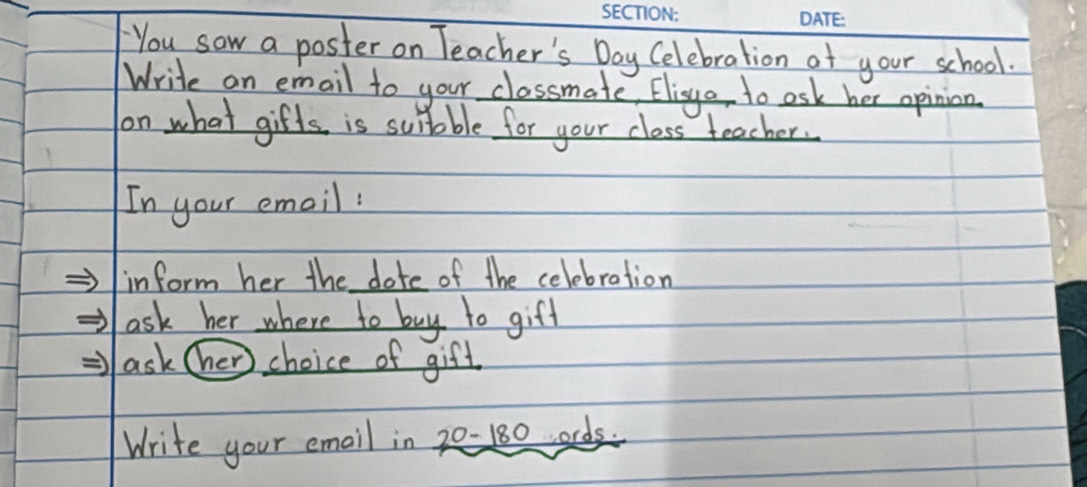 SECTION: DATE:
-You saw a poster on Teacher's Day Celebration at your school.
Write an email to your classmate, Elisya, to ask her opinion
on what gifts is suitable for your class teacher.
In your email:
⇒ inform her the date of the celebration
⇒ ask her where to buy to gift
⇒ ask her choice of gift.
Write your email in 20-180 words.